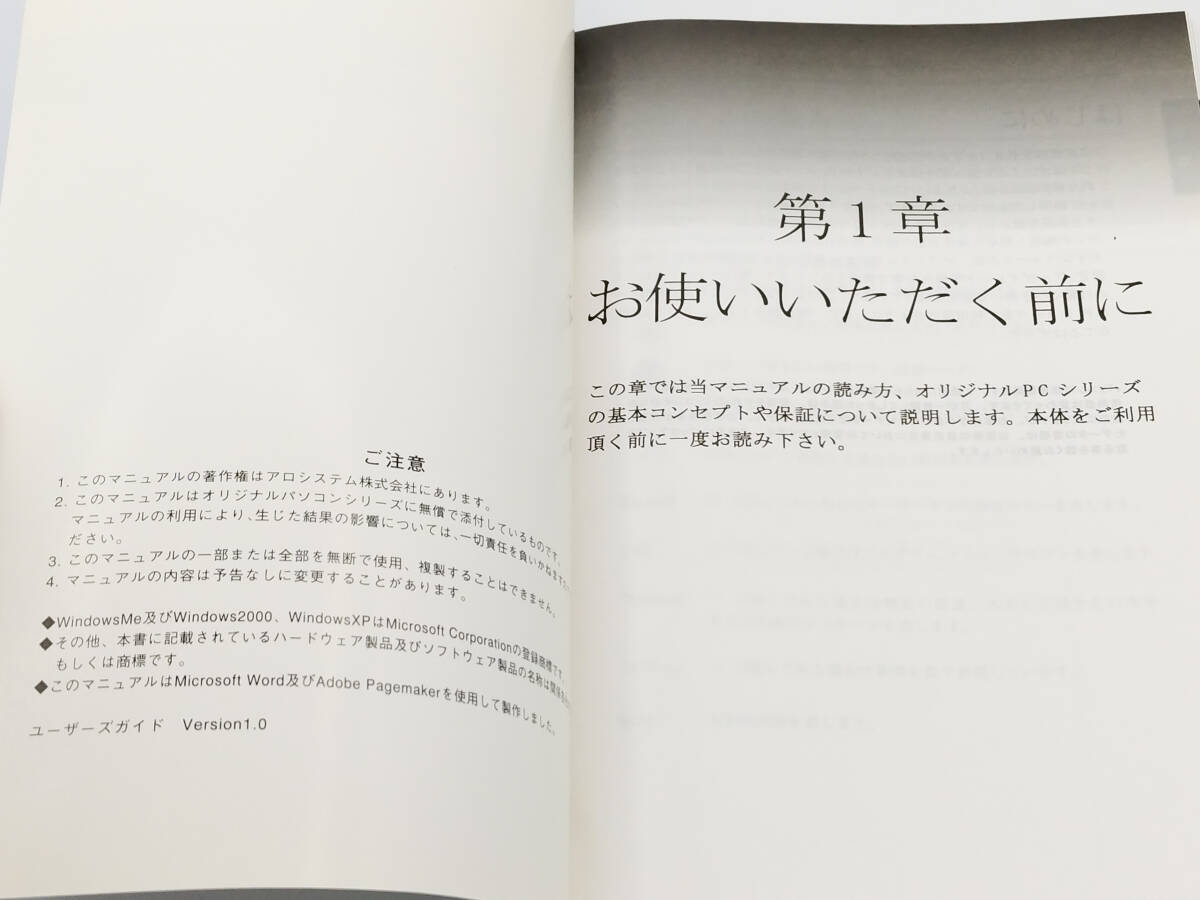 ご注意
1. このマニュアルの著作権はアロシステム株式会社にあります。
2. このマニュアルはオリジナルパソコンシリーズに無償で添付しているものです。
マニュアルの利用により、生じた結果の影響については、一切責任を負いかねます
ださい。
3. このマニュアルの一部または全部を無断で使用、複製することはできません。
4. マニュアルの内容は予告なしに変更することがあります。
◆WindowsMe及びWindows2000、WindowsXPはMicrosoft Corporationの登録商標です。
◆その他、本書に記載されているハードウェア製品及びソフトウェア製品の名称は関係
もしくは商標です。
◆このマニュアルはMicrosoft Word及びAdobe Pagemakerを使用して製作しました。
ユーザーズガイド Version1.0
第1章
お使いいただく前に
この章では当マニュアルの読み方、オリジナルPCシリーズ
の基本コンセプトや保証について説明します。本体をご利用
頂く前に一度お読み下さい。